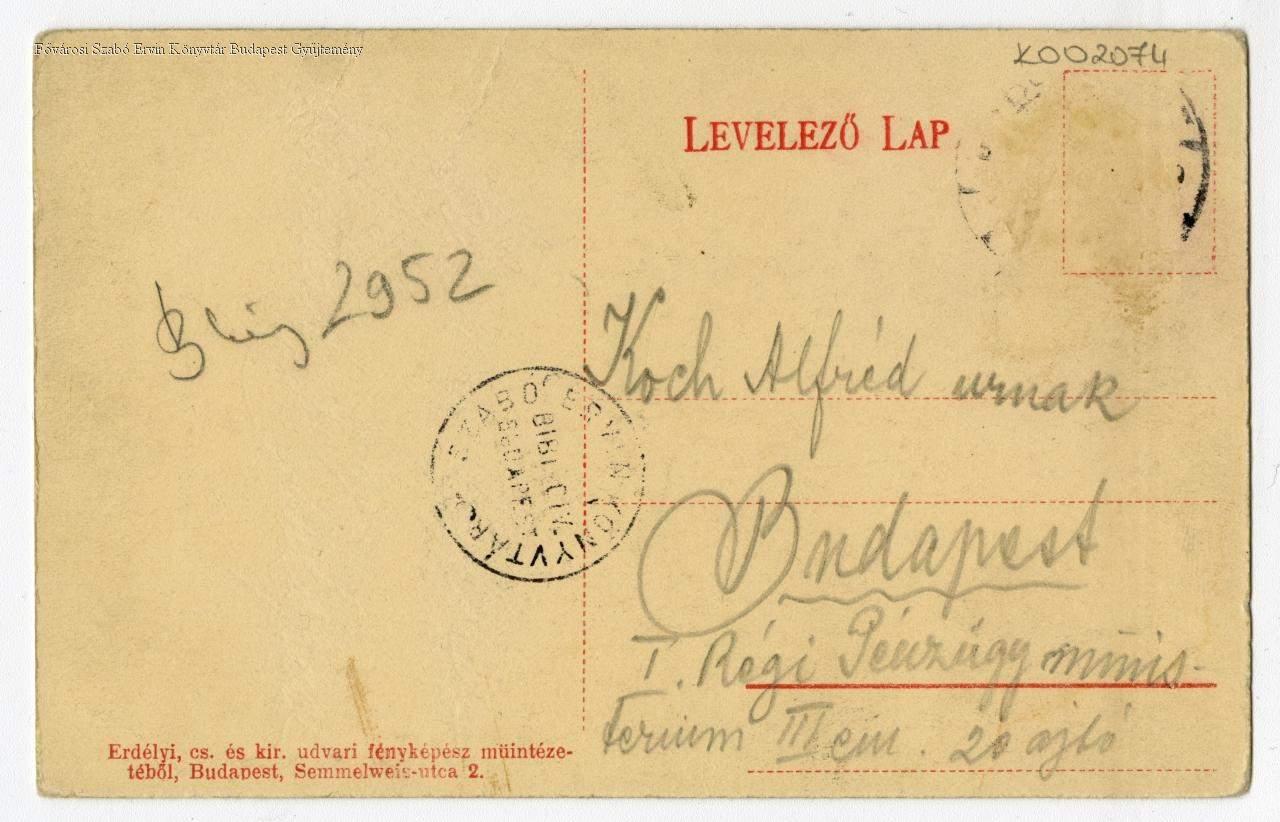 Fővárosi Szabó Ervin Könyvtár Budapest Gyűjtemény
K002074
LEVELEZŐ LAP
2952
SZABÓ ERVIN KÖNYVTÁR
BIBL. CIV.
BUDAPEST
Koch Alfréd urnak
Budapest
I. Régi Pénzügyminis-
terium III em. 20 ajtó
Erdélyi, cs. és kir. udvari fényképész müintéze-
téből, Budapest, Semmelweis-utca 2.